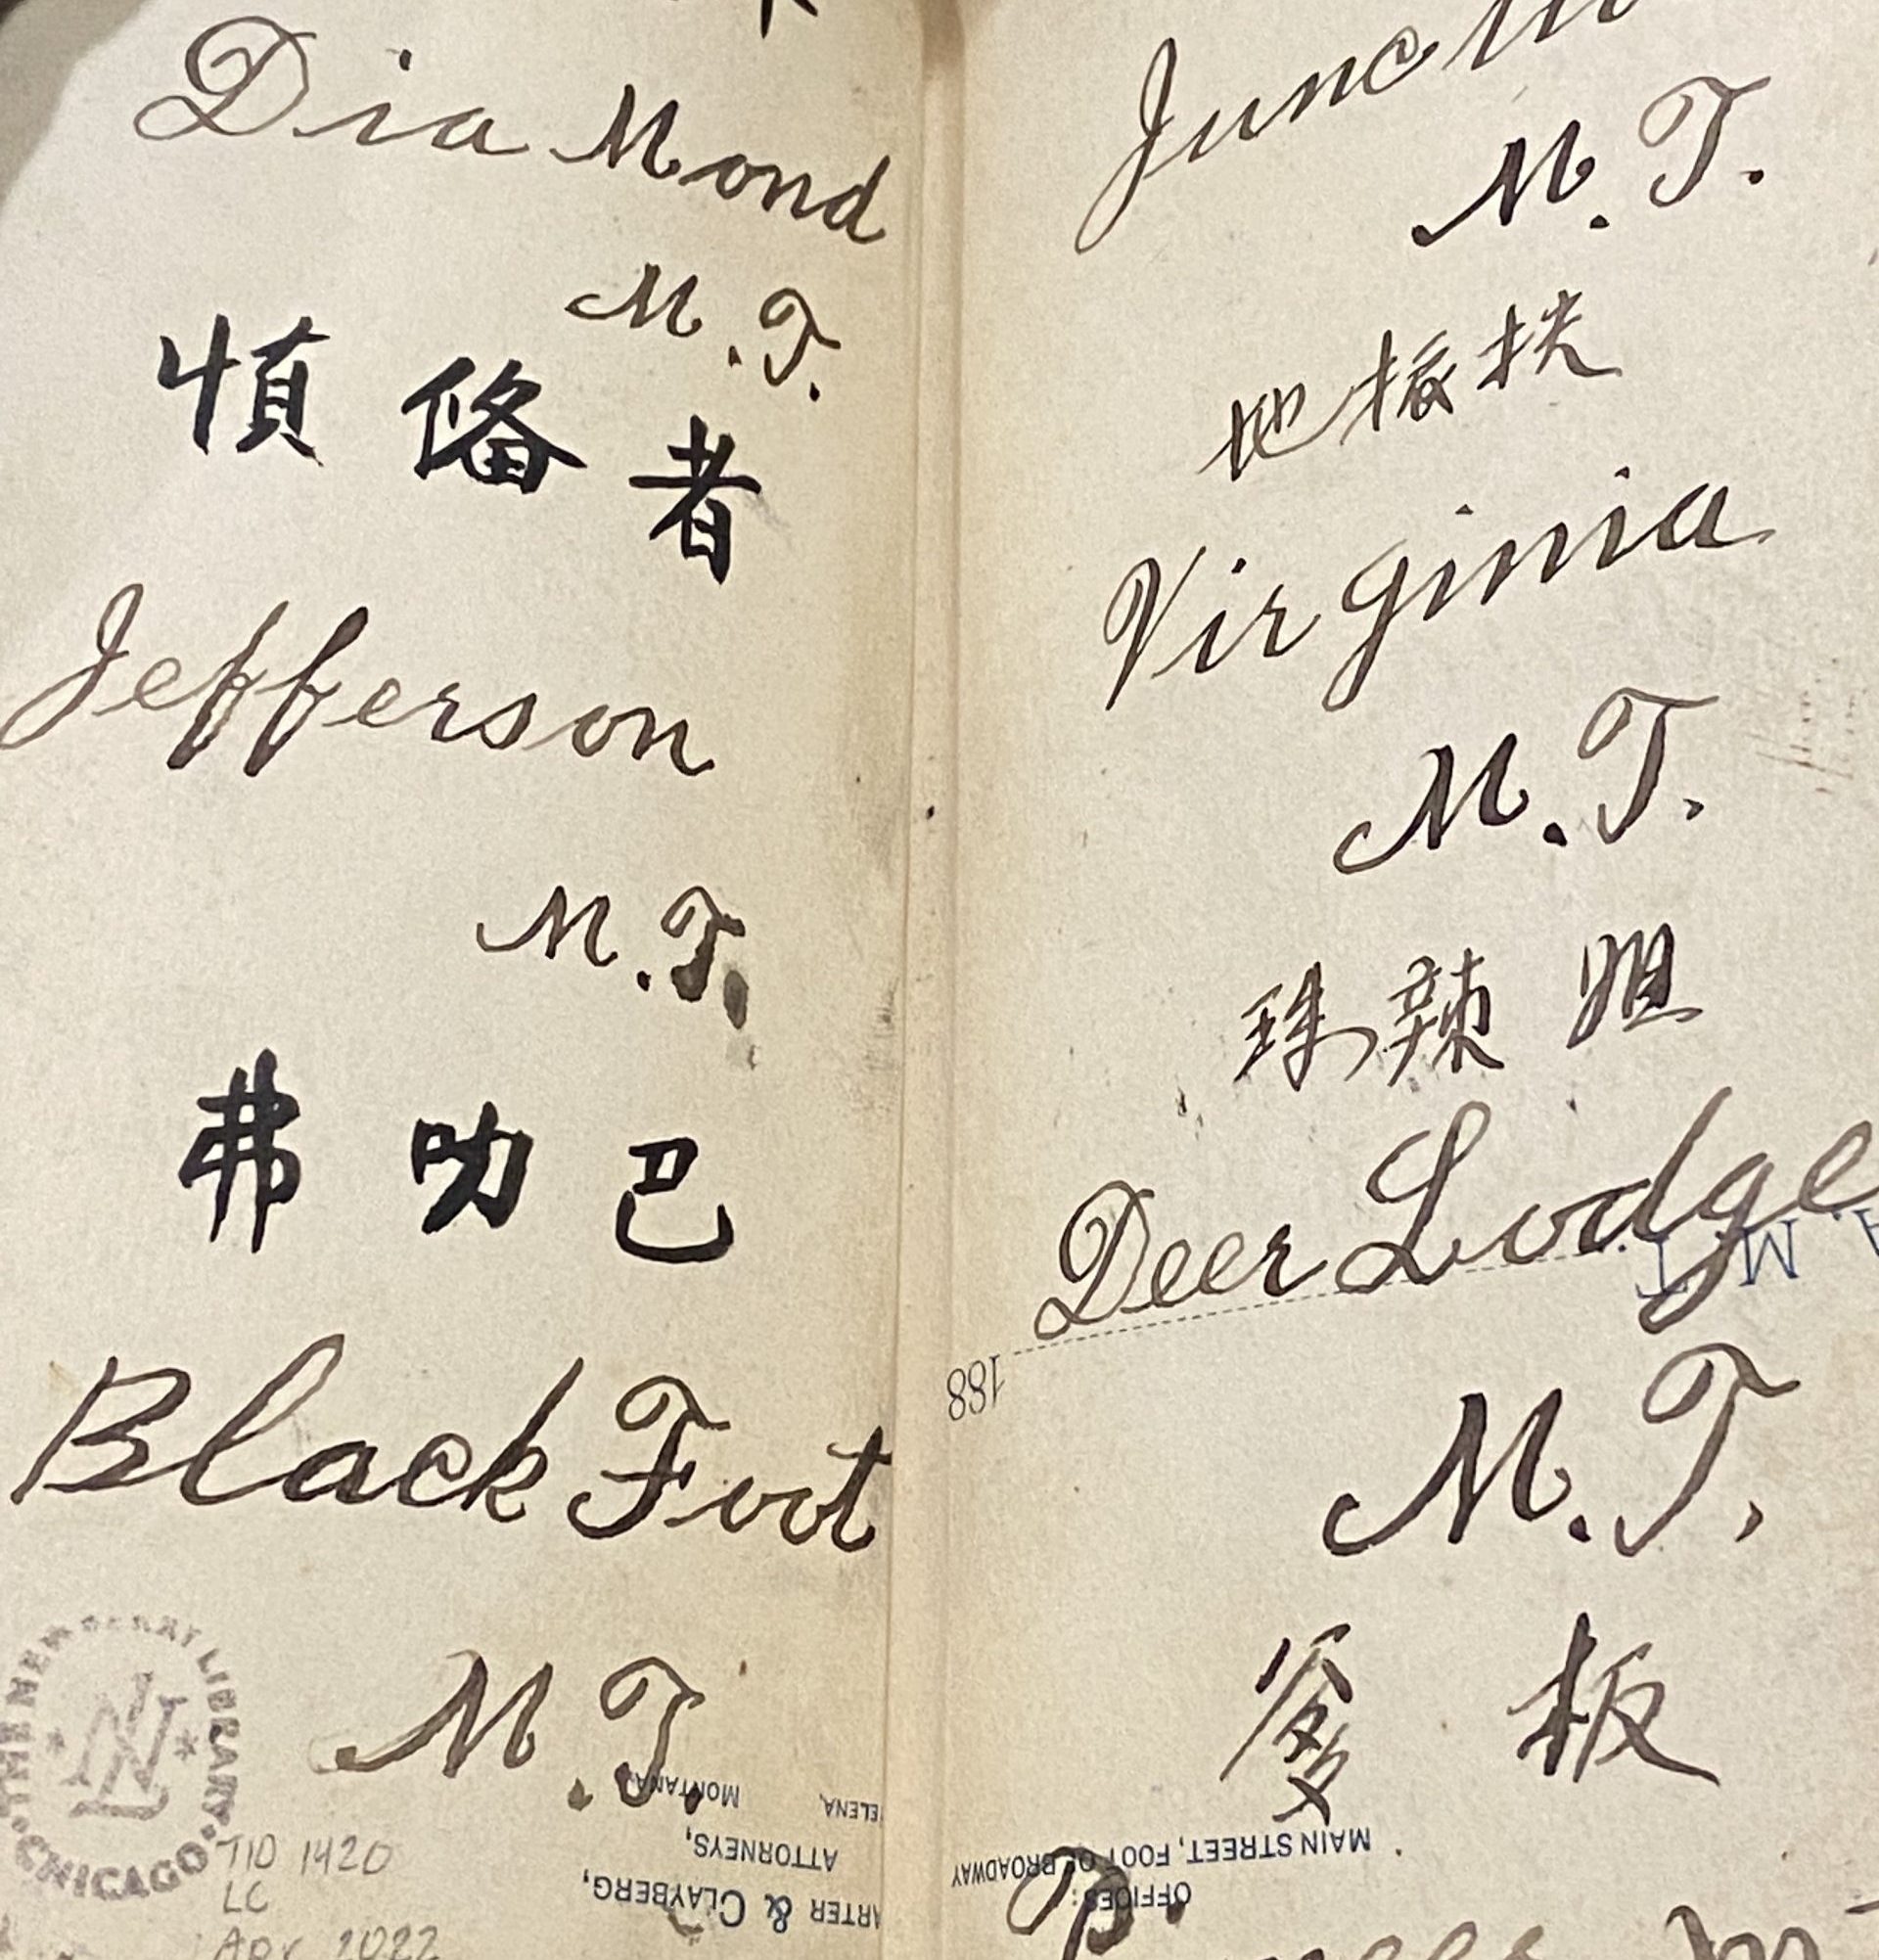 Dia Mond
M. T.
者俻慎
Jefferson
M. T.
巴叻弗
Black Foot
M. T.
THE NEWBERRY LIBRARY
CHICAGO
TID 1420
LC
Apr 2022
ARTER & CLAYBERG,
ATTORNEYS,
ELENA, MONTANA.
M. T.
地振扶
Virginia
M. T.
珠辣姐
Deer Lodge
A. M. T.
188
M. T.
爹板
OFFICES:
MAIN STREET, FOOT OF BROADWAY